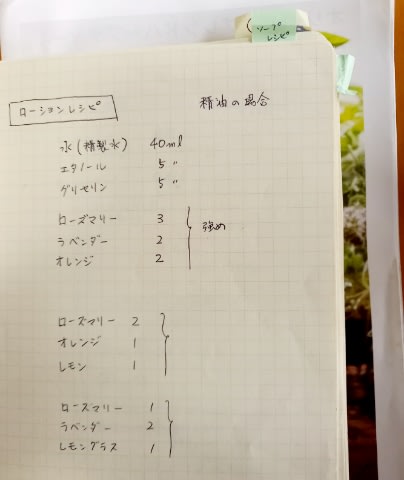 ソープ
レシピ
ローションレシピ
精油の場合
水(精製水) 40ml
エタノール 5 〃
グリセリン 5 〃
ローズマリー 3
ラベンダー 2 強め
オレンジ 2
ローズマリー 2
オレンジ 1
レモン 1
ローズマリー 1
ラベンダー 2
レモングラス 1